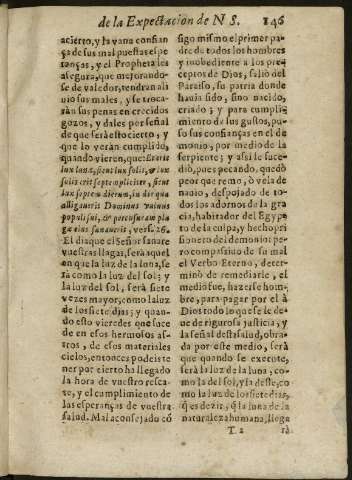 de la Expectacion de N S. 146
acierto, y la vana confian
ça de sus mal puestas espe
ranças, y el Propheta les
asegura, que mejorando-
se de valedor, tendran ali
uio sus males, y se troca-
ràn sus penas en crecidos
gozos, y dales por señal
de que serà esto cierto, y
que lo veràn cumplido,
quando vieren, que: Erit
lux lunæ, sicut lux solis, & lux
solis erit septempliciter, sicut
lux septem dierum, in die qua
alligauerit Dominus vulnus
populi sui, & percusuram pla
gæ eius sanauerit, vers. 26.
El dia que el Señor sanare
vuestras llagas, serà aquel
en que la luz de la luna, se
rà como la luz del sol; y
la luz del sol, serà siete
vezes mayor, como la luz
de los siete dias; y quan-
do esto vieredes que suce
de en esos hermosos as-
tros, de esos materiales
cielos, entonces podeis te
ner por cierto ha llegado
la hora de vuestro resca-
te, y el cumplimiento de
las esperanças de vuestra
salud. Mal aconsejado cõ
sigo mismo el primer pa-
dre de todos los hombres
y inobediente a los pre-
ceptos de Dios, saliò del
Paraiso, su patria donde
hauia sido, sino nacido,
criado; y para cumpli-
miento de sus gustos, pu-
so sus confianças en el de
monio, por medio de la
serpiente; y asi le suce-
diò, pues pecando, quedò
peor que remo, ò vela de
nauio, despojado de to-
dos los adornos de la gra
cia, habitador del Egyp-
to de la culpa, y hecho pri
sionero del demonio: pe-
ro compasiuo de su mal
el Verbo Eterno, deter-
minò de remediarle, el
medio fue, hazerse hom-
bre, para pagar por el à
Dios todo lo que se le de-
ue de rigurosa justicia, y
la señal desta salud, obra-
da por este medio, serà
que quando se execute,
serà la luz de la luna, co-
mo la del sol, y la deste, co
mo la luz de los siete dias,
q̃ es dezir, q̃ la luna de la
naturaleza humana, llega
T 2 rà